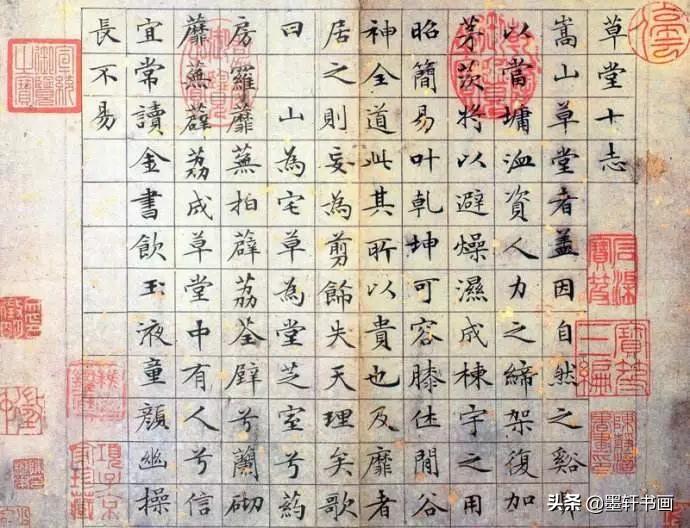 草堂十志
嵩山草堂者盖因自然之谿
以當墉洫資人力之締架復加
茅茨将以避燥濕成棟宇之用
昭簡易叶乾坤可容膝休閒谷
神全道此其所以貴也及靡者
居之則妄為剪飾失天理矣歌
曰 山為宅草為堂芝室兮葯
房羅蘼蕪拍薜荔荃壁兮蘭砌
蘼蕪薜荔成草堂中有人兮信
宜常讀金書飲玉液童顏幽操
長不易
头条 @墨轩书画